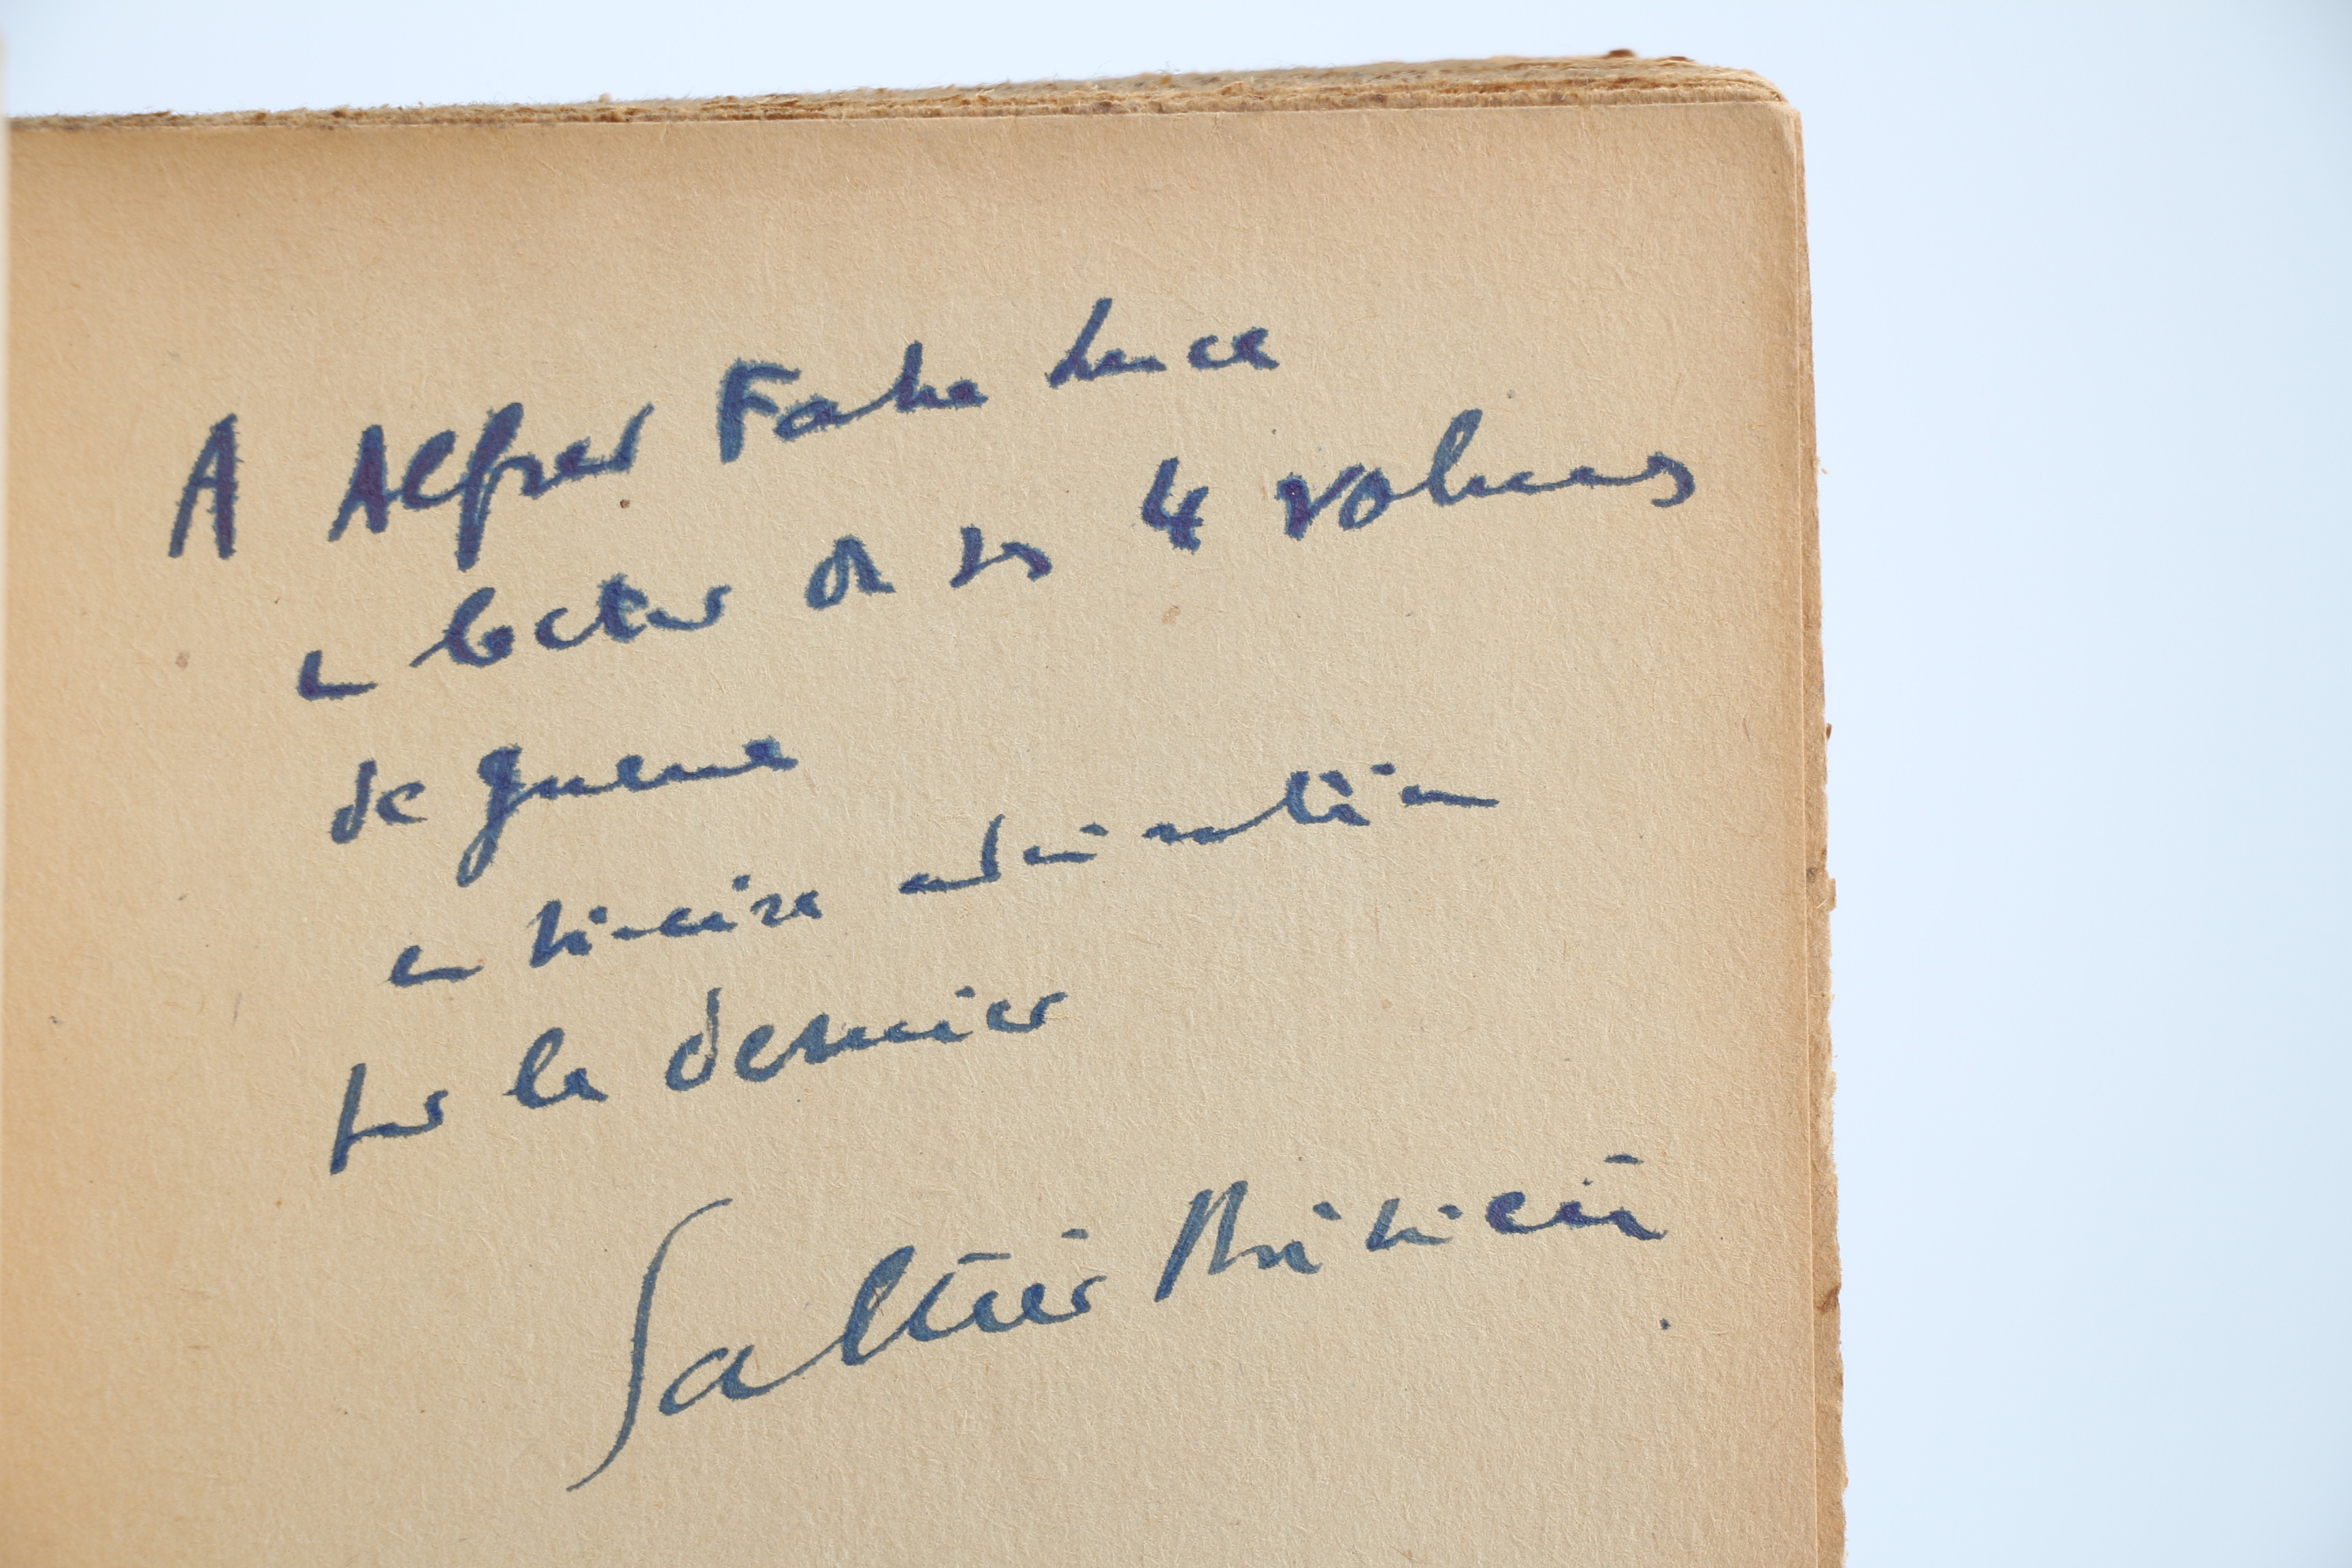 A Alfred Fabre Luce
un lecteur de ses 4 volumes
de guerre
en sincère admiration
pour le dernier
Galtier Boissière